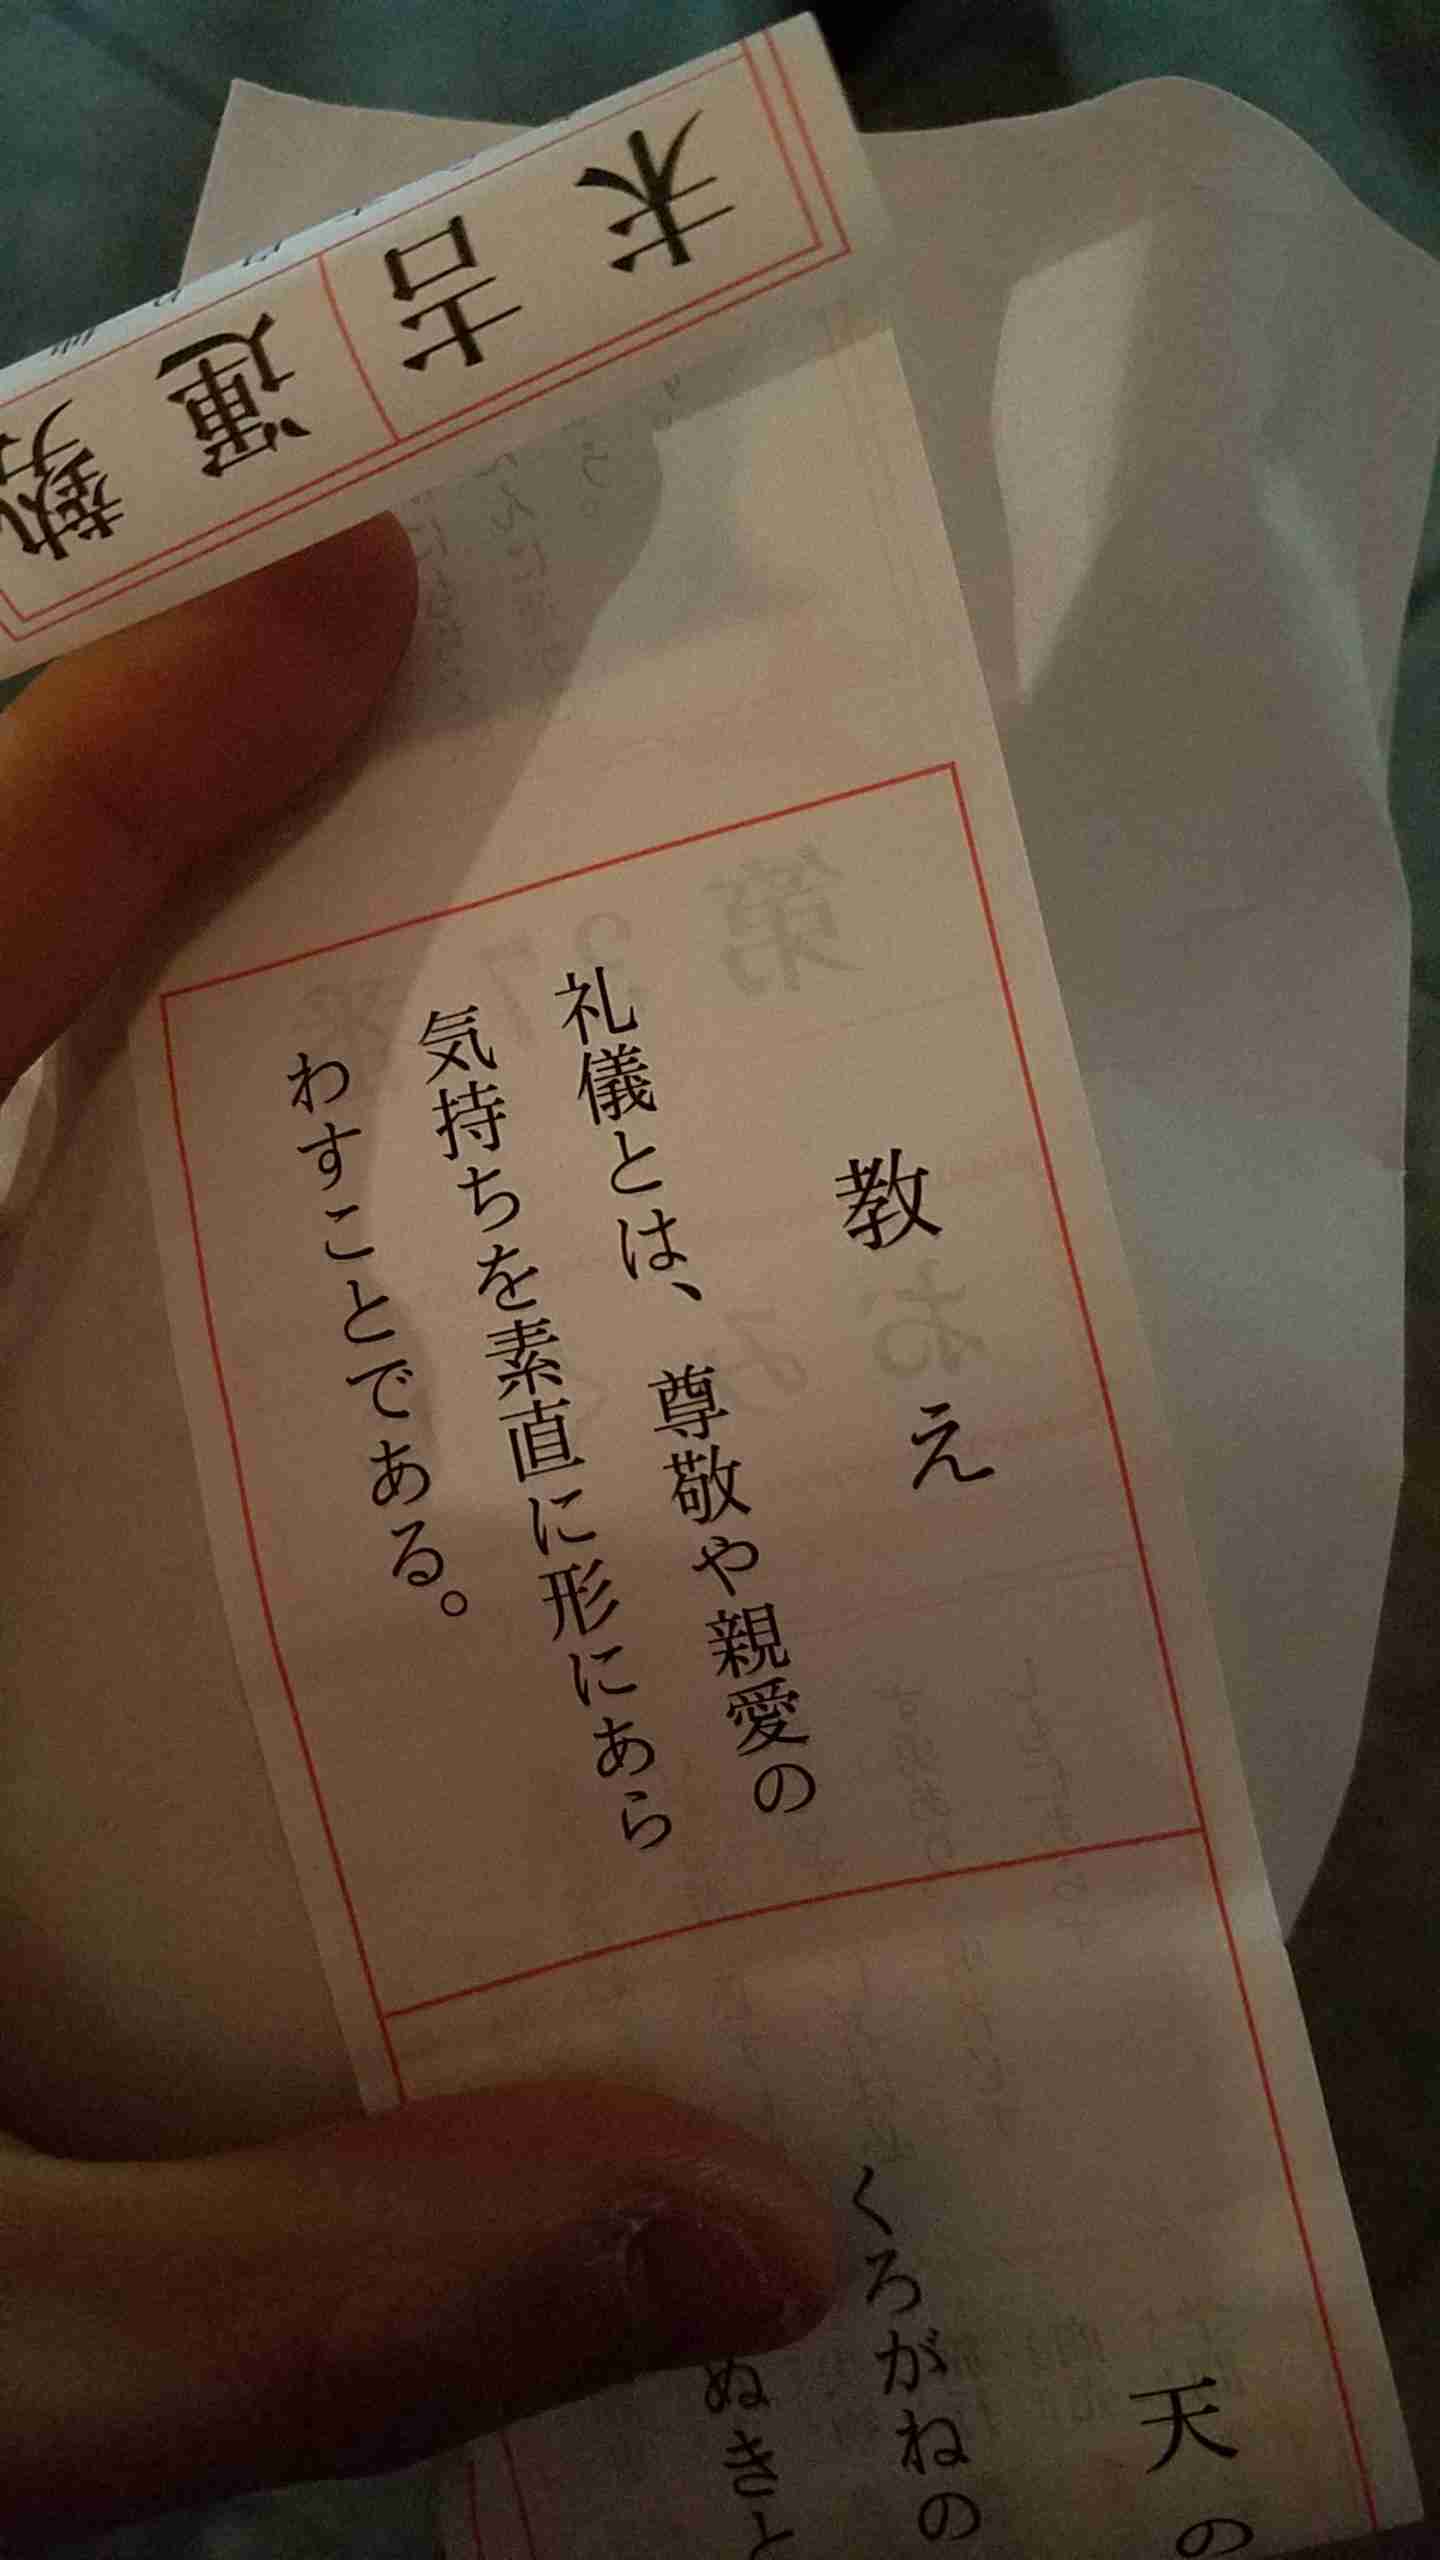 末吉
運勢
教え
礼儀とは、尊敬や親愛の
気持ちを素直に形にあら
わすことである。
天の
くろがねの
ぬきと